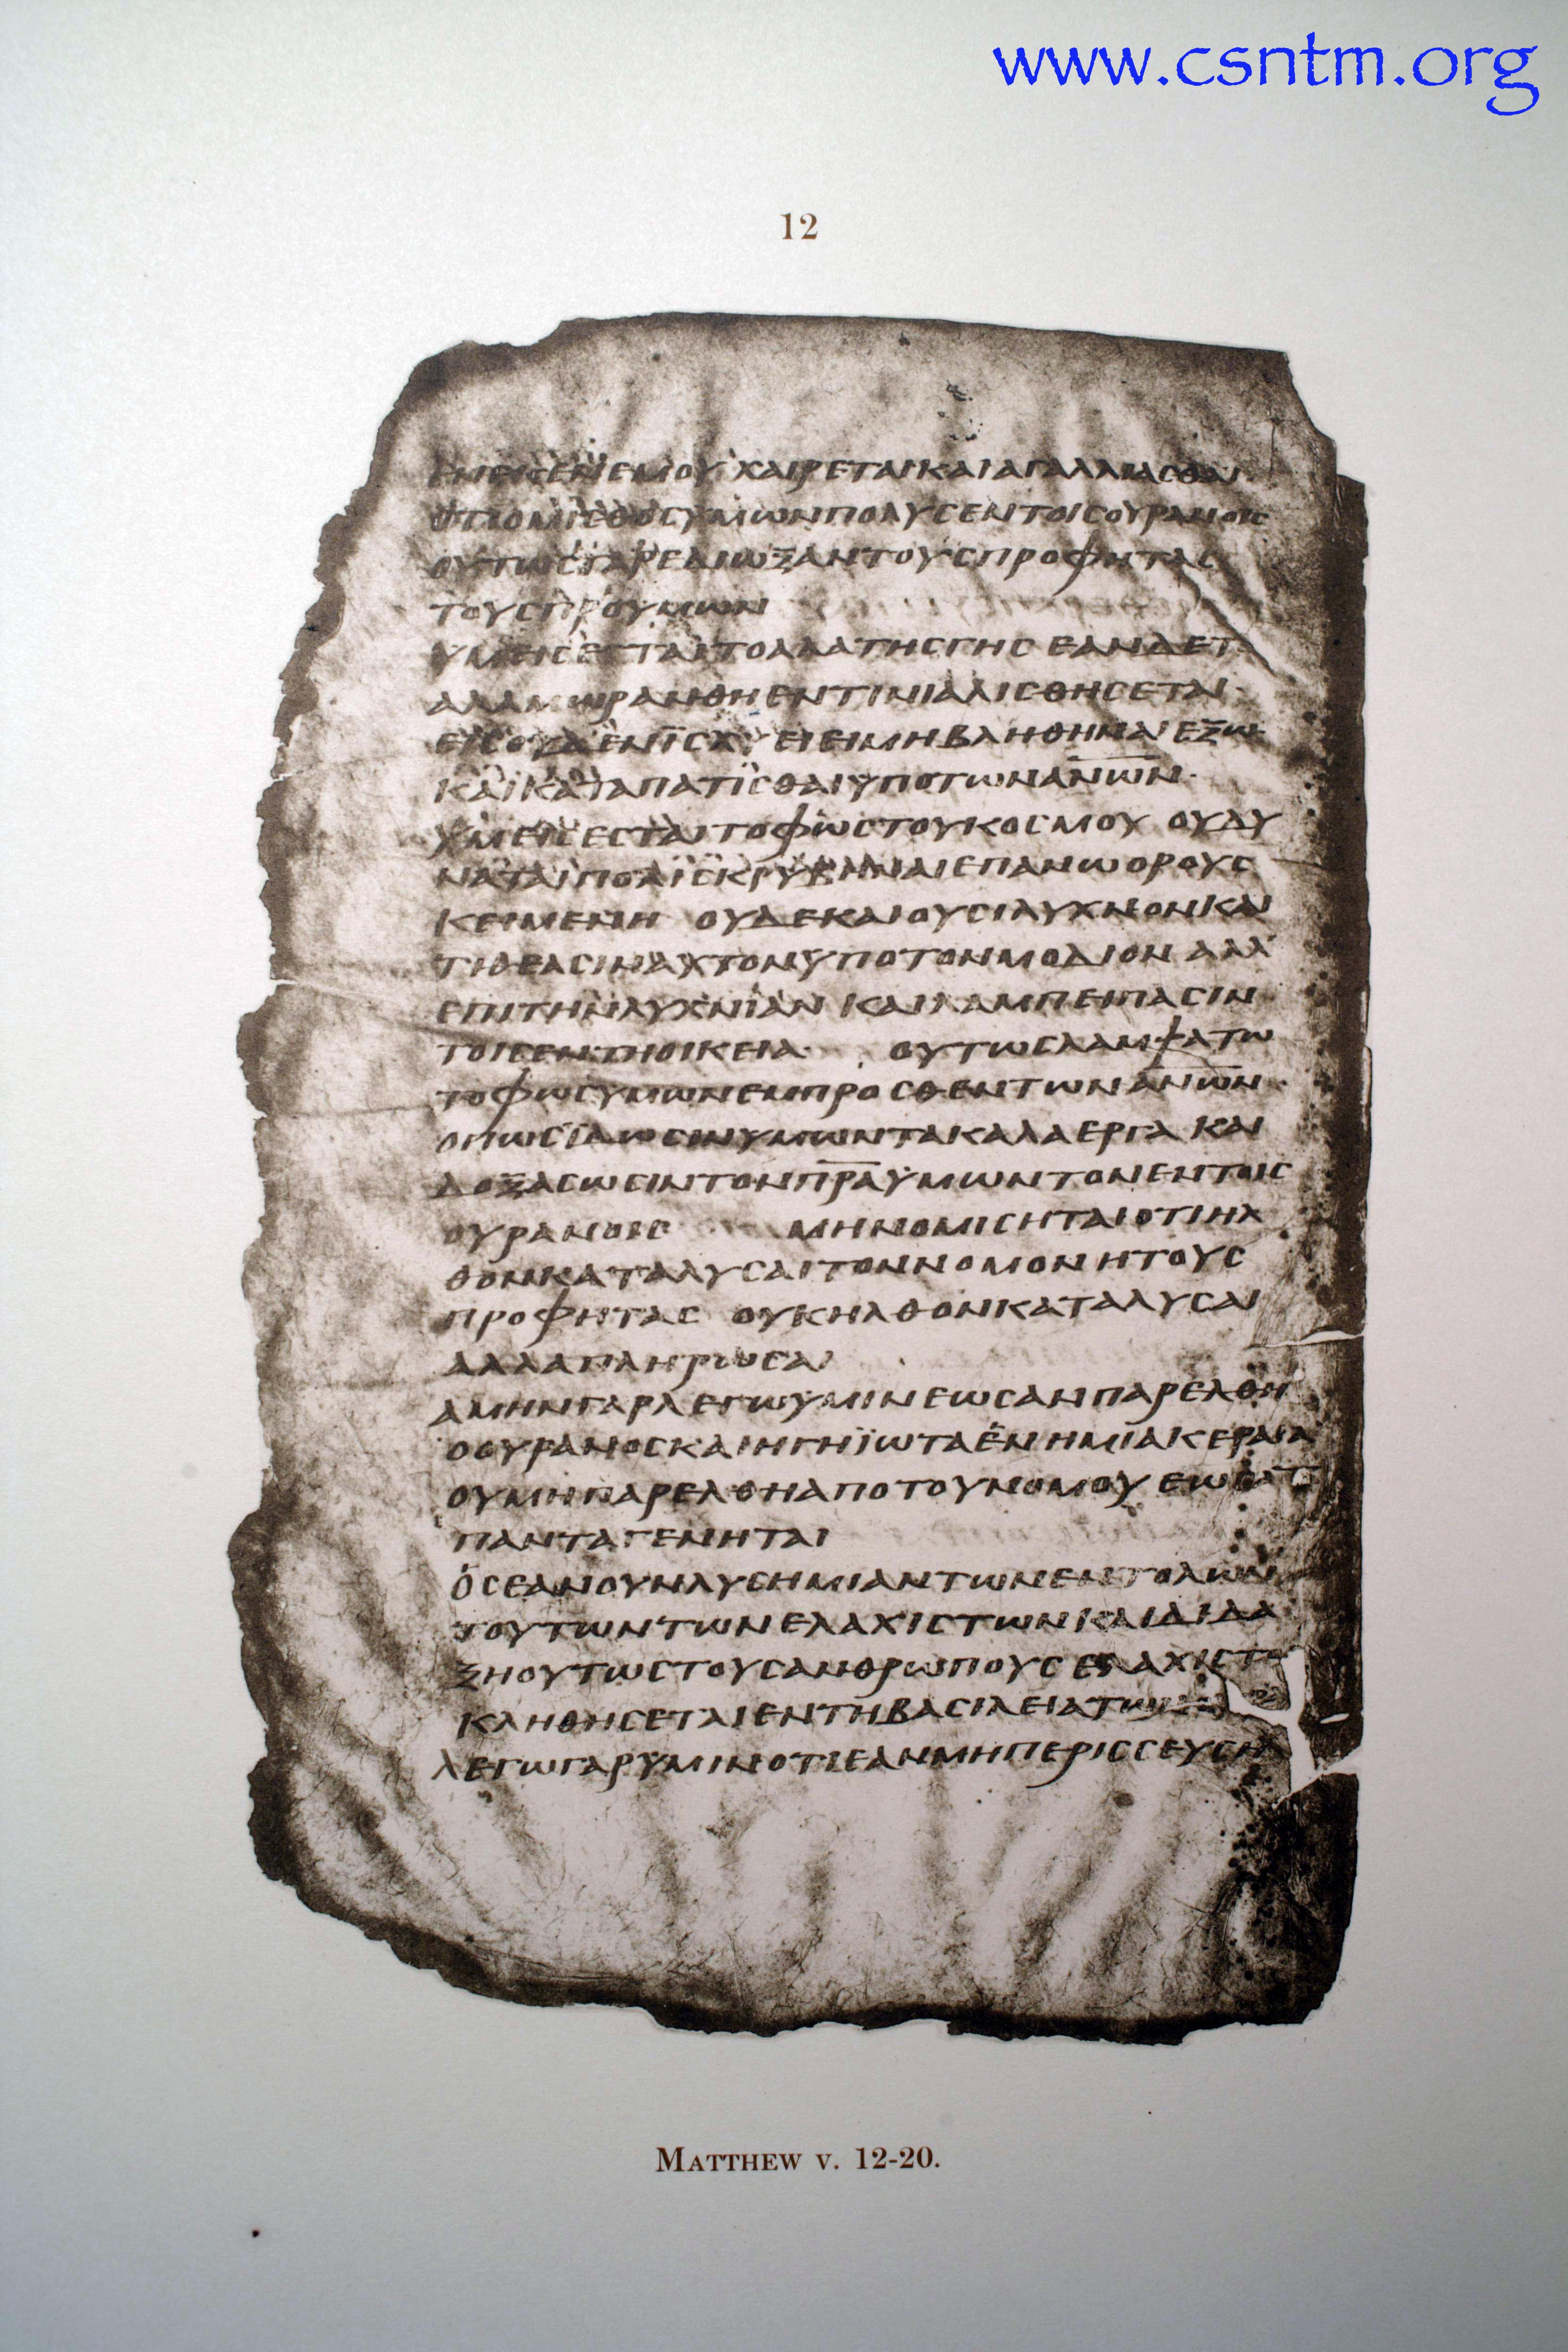 www.csntm.org
12
ΕΝΕΚΕΝ ΕΜΟΥ ΧΑΙΡΕΤΑΙ ΚΑΙ ΑΓΑΛΛΙΑСΘΑΙ
ΟΤΙ Ο ΜΙСΘΟС ΥΜΩΝ ΠΟΛΥС ΕΝ ΤΟΙС ΟΥΡΑΝΟΙС
ΟΥΤΩС ΓΑΡ ΕΔΙΩΞΑΝ ΤΟΥС ΠΡΟΦΗΤΑС
ΤΟΥС ΠΡΟ ΥΜΩΝ
ΥΜΕΙС ΕСΤΑΙ ΤΟ ΑΛΑ ΤΗС ΓΗС ΕΑΝ ΔΕ Τ
ΑΛΑ ΜΩΡΑΝΘΗ ΕΝ ΤΙΝΙ ΑΛΙСΘΗСΕΤΑΙ
ΕΙС ΟΥΔΕΝ ΙСΧΥΕΙ ΕΙ ΜΗ ΒΛΗΘΗΝΑΙ ΕΞΩ
ΚΑΙ ΚΑΤΑΠΑΤΙСΘΑΙ ΥΠΟ ΤΩΝ ΑΝ̅Ω̅Ν̅
ΥΜΕΙС ΕСΤΑΙ ΤΟ ΦΩС ΤΟΥ ΚΟСΜΟΥ ΟΥ ΔΥ
ΝΑΤΑΙ ΠΟΛΙС ΚΡΥΒΗΝΑΙ ΕΠΑΝΩ ΟΡΟΥС
ΚΕΙΜΕΝΗ ΟΥΔΕ ΚΑΙΟΥСΙ ΛΥΧΝΟΝ ΚΑΙ
ΤΙΘΕΑСΙΝ ΑΥΤΟΝ ΥΠΟ ΤΟΝ ΜΟΔΙΟΝ ΑΛΛ
ΕΠΙ ΤΗΝ ΛΥΧΝΙΑΝ ΚΑΙ ΛΑΜΠΕΙ ΠΑСΙΝ
ΤΟΙС ΕΝ ΤΗ ΟΙΚΕΙΑ ΟΥΤΩС ΛΑΜΨΑΤΩ
ΤΟ ΦΩС ΥΜΩΝ ΕΜΠΡΟСΘΕΝ ΤΩΝ ΑΝ̅Ω̅Ν̅
ΟΠΩС ΙΔΩСΙΝ ΥΜΩΝ ΤΑ ΚΑΛΑ ΕΡΓΑ ΚΑΙ
ΔΟΞΑСΩСΙΝ ΤΟΝ Π̅Ρ̅Α̅ ΥΜΩΝ ΤΟΝ ΕΝ ΤΟΙС
ΟΥΡΑΝΟΙС ΜΗ ΝΟΜΙСΗΤΑΙ ΟΤΙ ΗΛ
ΘΟΝ ΚΑΤΑΛΥСΑΙ ΤΟΝ ΝΟΜΟΝ Η ΤΟΥС
ΠΡΟΦΗΤΑС ΟΥΚ ΗΛΘΟΝ ΚΑΤΑΛΥСΑΙ
ΑΛΛΑ ΠΛΗΡΩСΑΙ
ΑΜΗΝ ΓΑΡ ΛΕΓΩ ΥΜΙΝ ΕΩС ΑΝ ΠΑΡΕΛΘΗ
Ο ΟΥΡΑΝΟС ΚΑΙ Η ΓΗ ΪΩΤΑ ΕΝ Η ΜΙΑ ΚΕΡΑΙΑ
ΟΥ ΜΗ ΠΑΡΕΛΘΗ ΑΠΟ ΤΟΥ ΝΟΜΟΥ ΕΩС ΑΝ
ΠΑΝΤΑ ΓΕΝΗΤΑΙ
ΟС ΕΑΝ ΟΥΝ ΛΥСΗ ΜΙΑΝ ΤΩΝ ΕΝΤΟΛΩΝ
ΤΟΥΤΩΝ ΤΩΝ ΕΛΑΧΙСΤΩΝ ΚΑΙ ΔΙΔΑ
ΞΗ ΟΥΤΩС ΤΟΥС ΑΝΘΡΩΠΟΥС ΕΛΑΧΙСΤΟ
ΚΛΗΘΗСΕΤΑΙ ΕΝ ΤΗ ΒΑСΙΛΕΙΑ ΤΩΝ
ΛΕΓΩ ΓΑΡ ΥΜΙΝ ΟΤΙ ΕΑΝ ΜΗ ΠΕΡΙССΕΥСΗ
MATTHEW V. 12-20.